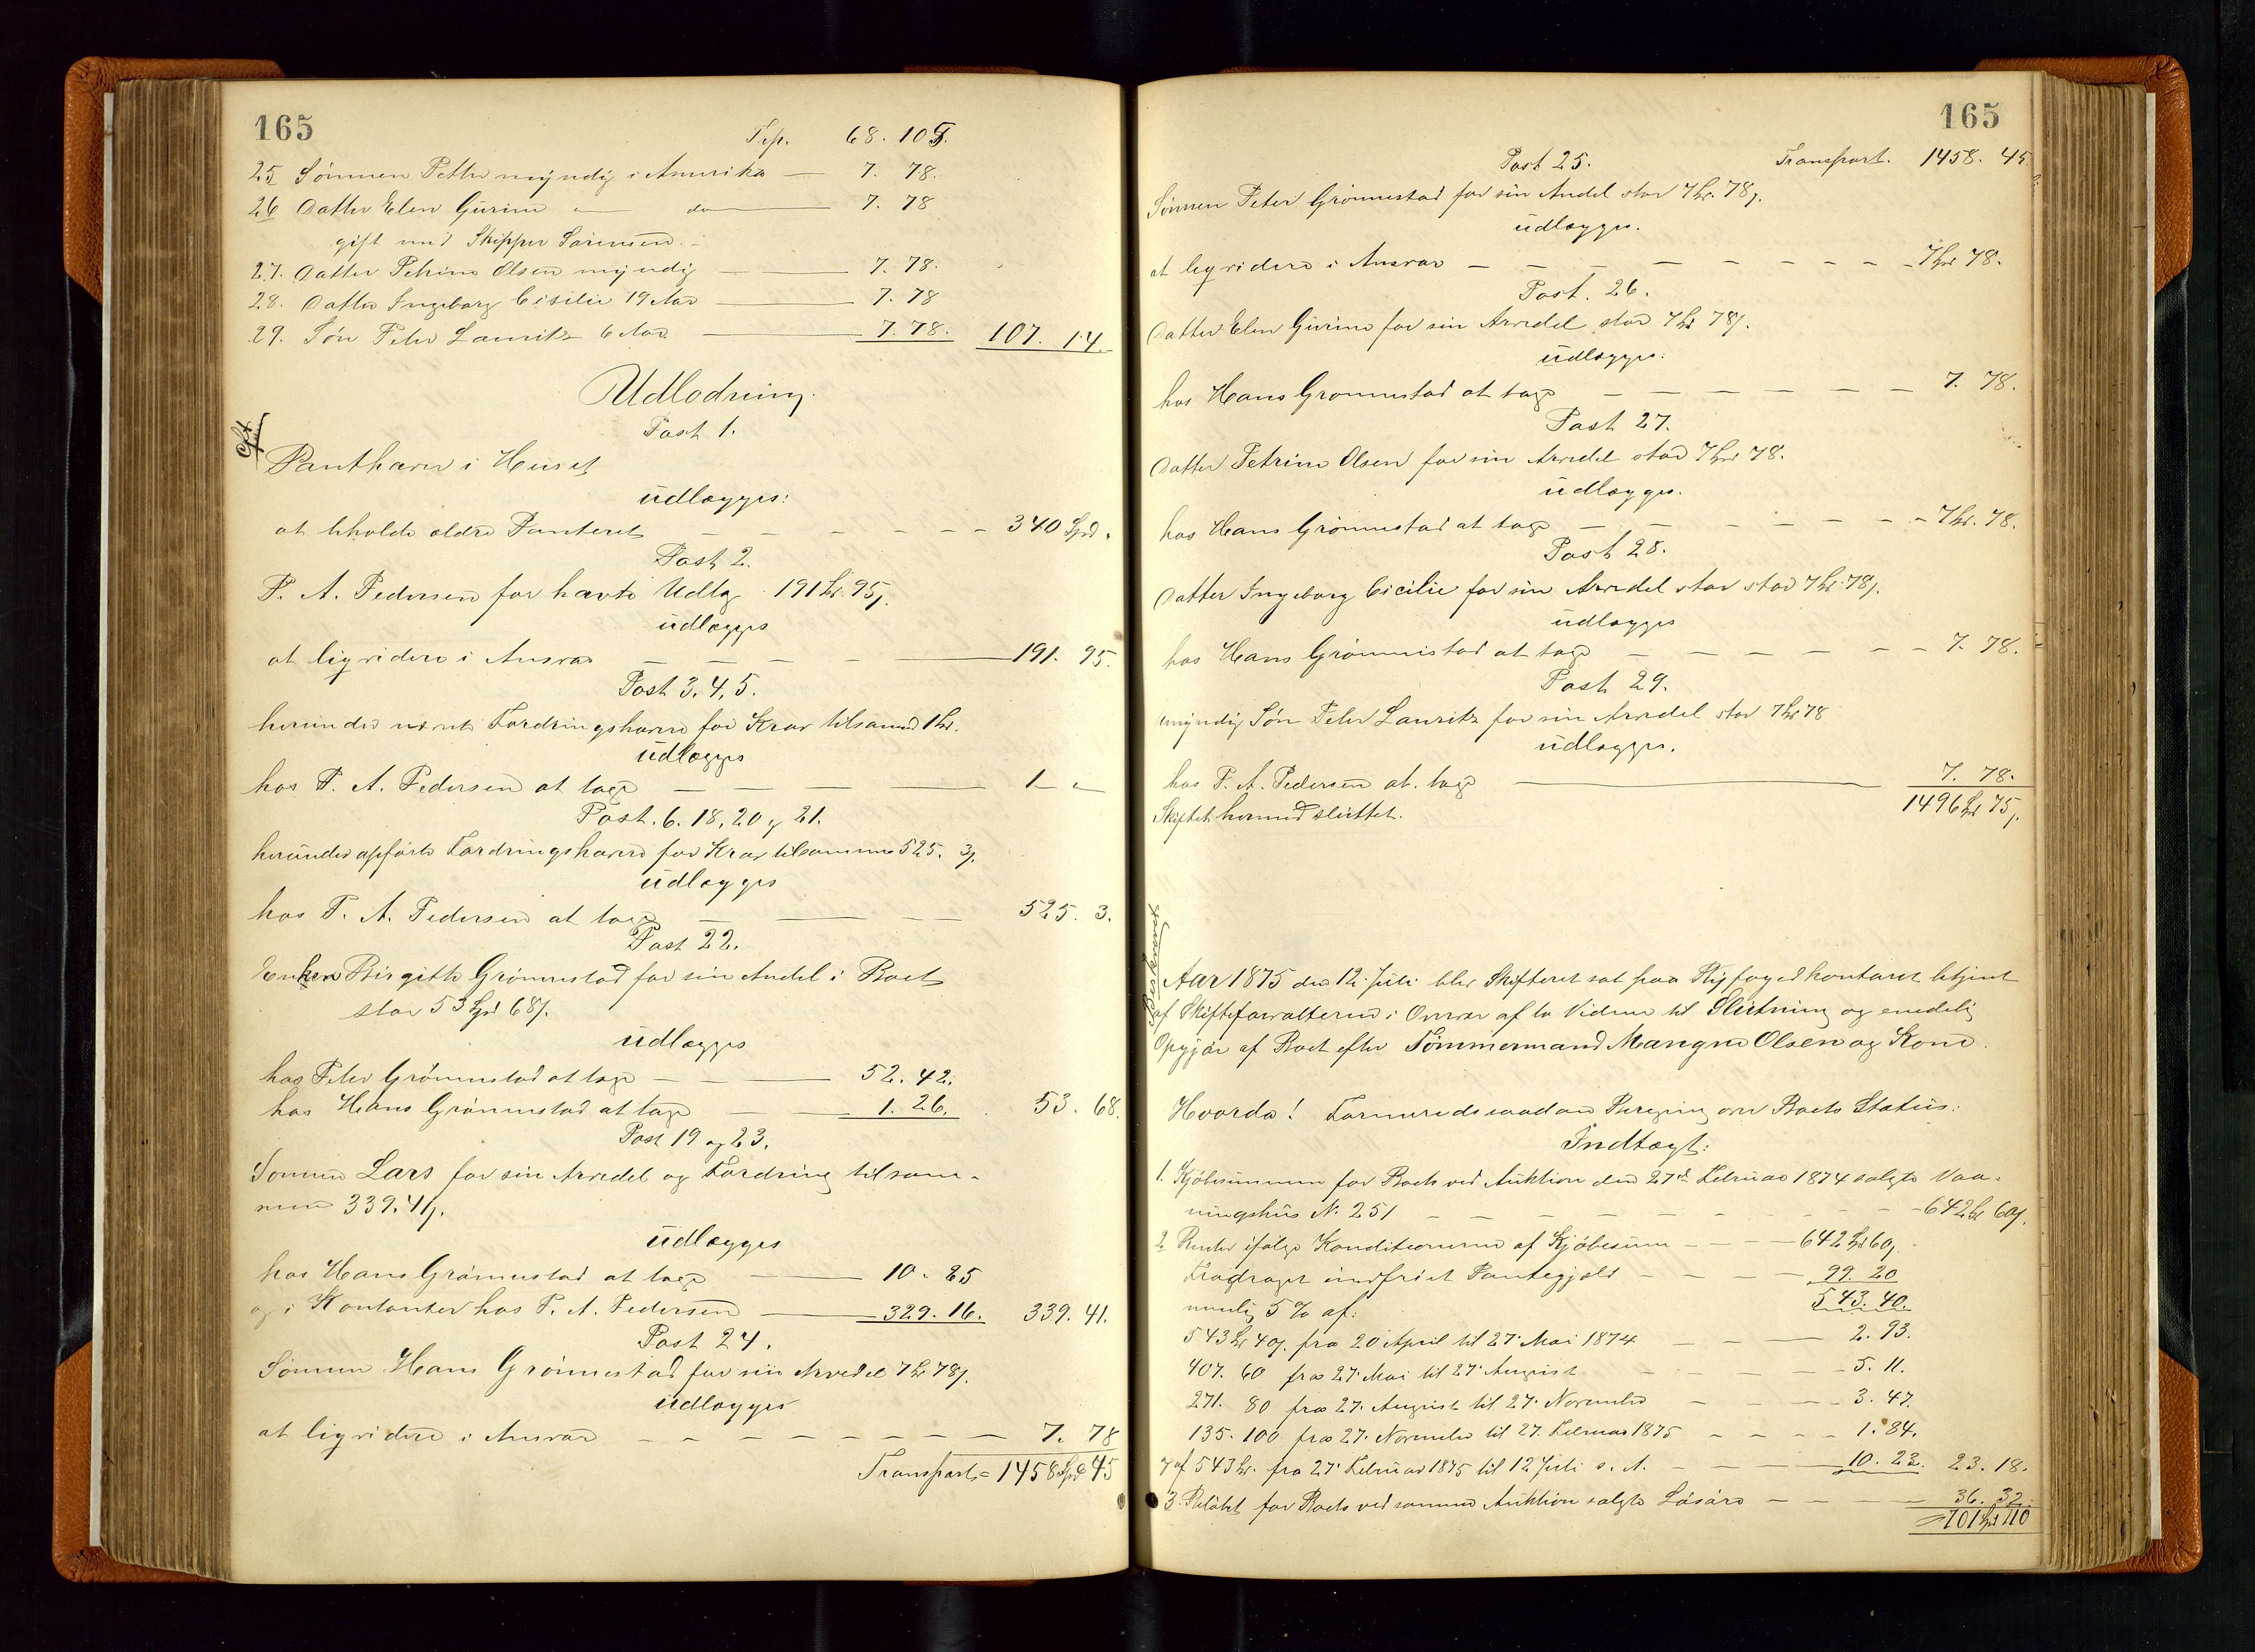 165
Trp. 68. 105.
25 Sönnen Petter myndig i Amerika — 7. 78.
26 Datter Elen Gurine — do — 7. 78
gift med Skipper Sörensen.
27. Datter Petrine Olsen myndig — 7. 78.
28. Datter Ingeborg Cisilie 19 Aar — 7. 78
29. Sön Peter Lauritz 6 Aar — 7. 78. 107. 14.
Udlodning.
Post 1.
Panthaver i Huset
udlægges:
at beholde ældre Panteret — 340 Spd.
Post 2.
P. A. Pedersen for havte Udlæg 191 Spd. 95 s.
udlægges
at liqvidere i Ansvar — 191. 95.
Post 3. 4. 5.
herunder nævnte Fordringshavere for Krav tilsammen 1 Spd.
udlægges
hos P. A. Pedersen at tage — 1 - "
Post. 6. 18, 20 og 21.
herunder opførte Fordringshavere for Krav tilsammen 525. 3 s.
udlægges
hos P. A. Pedersen at tage — 525. 3.
Post 22.
Enken Birgitte Grönnestad for sin Andel i Boet
stor 53 Spd 68 s.
udlægges
hos Peter Grönnestad at tage — 52. 42.
hos Hans Grönnestad at tage — 1. 26. 53. 68.
Post 19 og 23.
Sönnen Lars for sin Arvedel og Fordring tilsam-
men 339. 41 s.
udlægges
hos Hans Grönnestad at tage — 10. 25
og i Kontanter hos P. A. Pedersen — 329. 16. 339. 41.
Post 24.
Sönnen Hans Grönnestad for sin Arvedel 7 Spd 78 s.
udlægges
at liqvidere i Ansvar — 7. 78
Transport = 1458 Spd 45
165
Post 25. Transport. 1458. 45
Sönnen Peter Grönnestad for sin Andel stor 7 Spd. 78 s.
udlægges.
at liqvidere i Ansvar — 7 Spd 78.
Post. 26.
Datter Elen Gurine for sin Arvedel stor 7 Spd 78 s.
udlægges.
hos Hans Grönnestad at tage — 7. 78.
Post 27.
Datter Petrine Olsen for sin Arvedel stor 7 Spd 78.
udlægges.
hos Hans Grönnestad at tage — 7 Spd. 78.
Post 28.
Datter Ingeborg Cicilie for sin Arvedel stor stor 7 Spd 78 s.
udlægges
hos Hans Grönnestad at tage — 7. 78.
Post 29.
umyndig Sön Peter Lauritz for sin Arvedel stor 7 Spd 78
udlægges.
hos P. A. Pedersen at tage — 7. 78.
1496 Spd 75 s.
Skiftet hermed sluttet.
Aar 1875 den 12. Juli blev Skifteret sat paa Byfogedkontoret betjent
af Skifteforvalteren i Overvær af to Vidner til Slutning og endelig
Opgjör af Boet efter Tömmermand Mangne Olsen og Kone.
Hvorda! Formeredes saadan Beregning over Boets Status:
Indtægt:
1. Kjöbesummen for Boets ved Auktion den 27de Februar 1874 solgte Vaa-
ningshus N. 251 — 642 Spd 60 s.
2 Renter ifölge Konditionerne af Kjöbesum — 642 Spd 60 s.
Fradraget indfriet Pantegjæld — 99. 20
nemlig 5 % af: 543. 40.
543 Spd 40 s. fra 20 April til 27. Mai 1874 — 2. 93.
407. 60 fra 27. Mai til 27. August — 5. 11.
271. 80 fra 27. August til 27. November — 3. 47.
135. 100 fra 27. November til 27. Februar 1875 — 1. 84.
og af 543 Spd. fra 27. Februar 1875 til 12 Juli s. A. — 10. 23. 23. 18.
3. Belöbet for Boets ved samme Auktion solgte Lösöre — 36. 32.
= 701 Spd 110